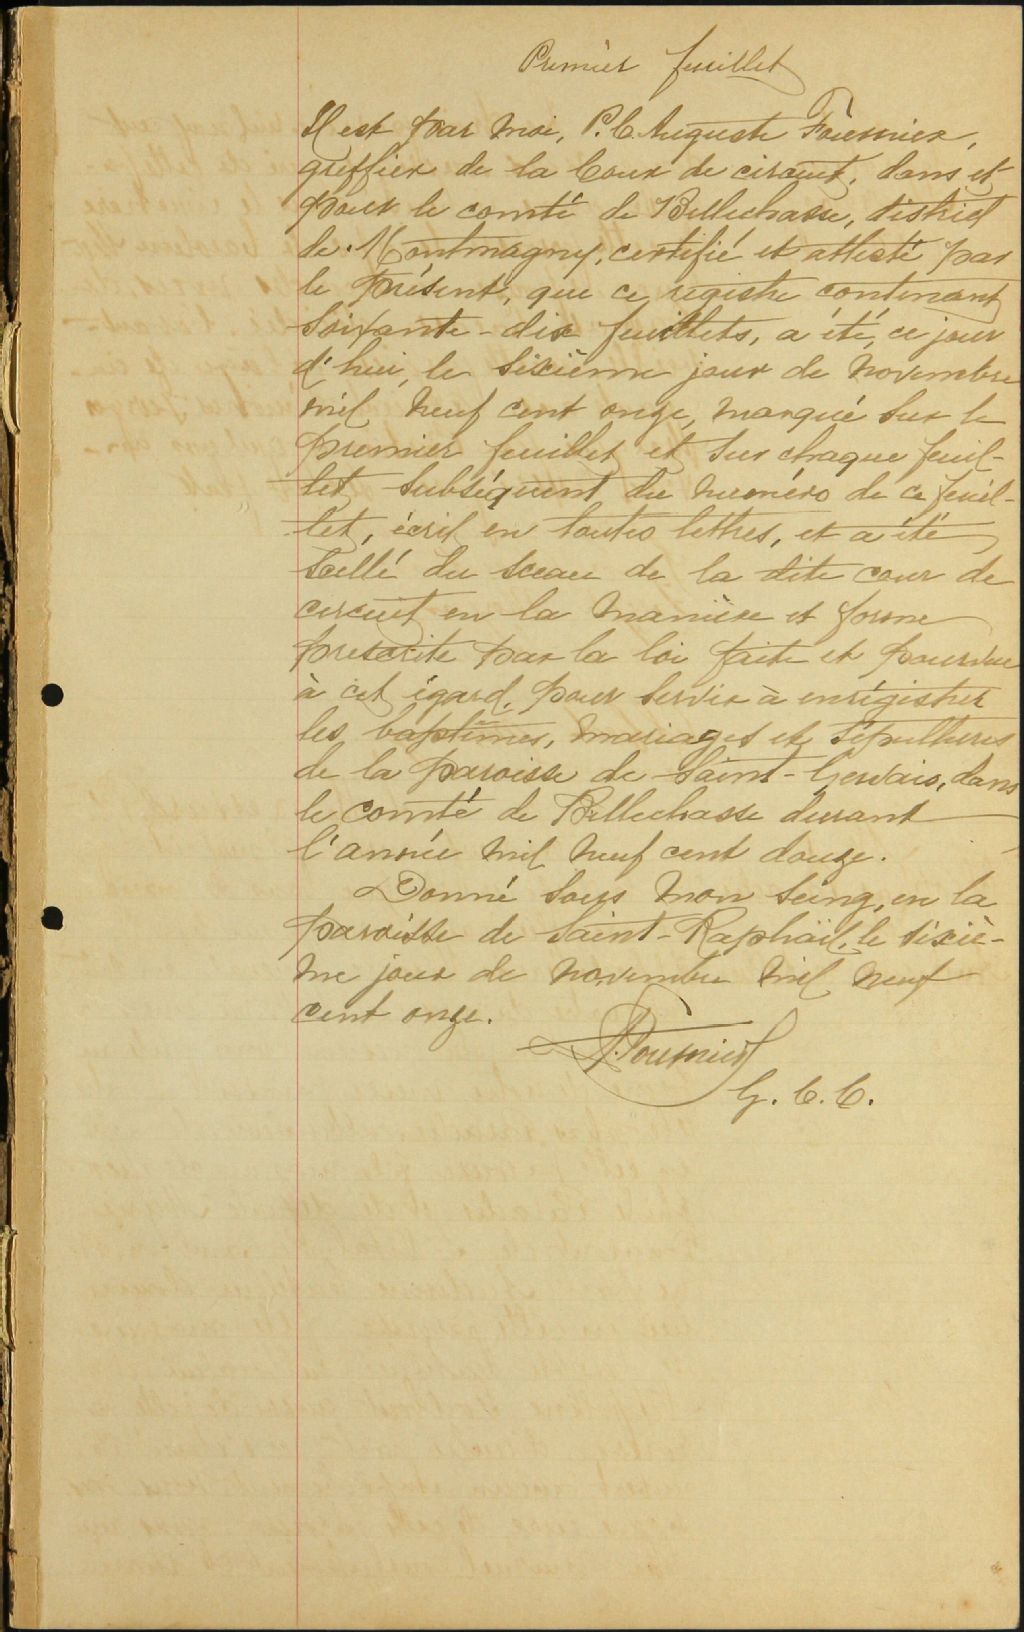 Premier feuillet
Il est par moi, P. C. Auguste Fournier,
greffier de la Cour de circuit, dans et
pour le comté de Bellechasse, district
de Montmagny, certifié et attesté par
le présent, que ce registre contenant
Soixante-dix feuillets, a été, ce jour
d'hui, le sixième jour de novembre
mil neuf cent onze, marqué sur le
premier feuillet et sur chaque feuil-
let subséquent, du numéro de ce feuil-
let, écrit en toutes lettres, et a été
scellé du sceau de la dite cour de
circuit en la manière et forme
prescrite par la loi faite et pourvue
à cet égard, pour servir à enrégistrer
les baptêmes, mariages et sépultures
de la paroisse de Saint-Gervais, dans
le comté de Bellechasse durant
l'année mil neuf cent douze.
Donné sous mon seing, en la
paroisse de Saint-Raphaël, le sixiè-
me jour de novembre mil neuf
cent onze.
A. Fournier
G. C. C.